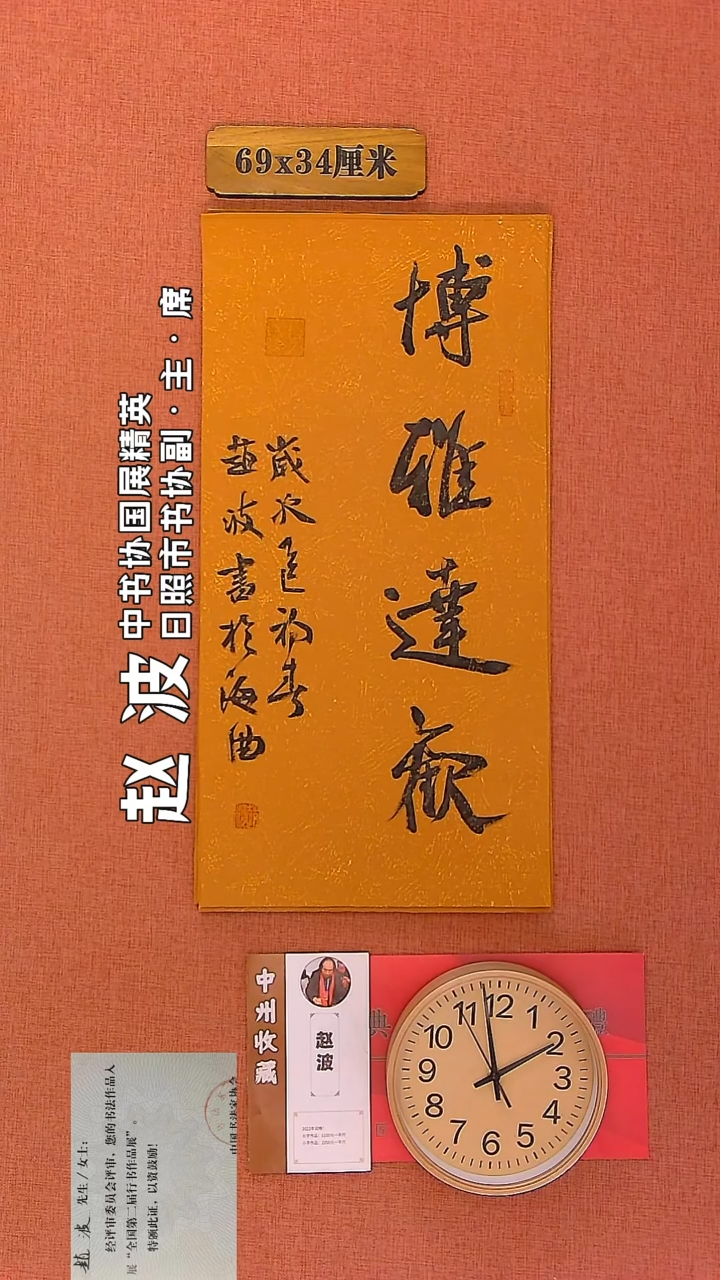 69x34厘米
博雅達觀
歲次
初春
趙波書於海曲
赵 波
中书协国展精英
日照市书协副·主·席
中书协
赵波
典
12
1
2
3
4
5
6
7
8
9
10
11
趙 波 先生/女士:
经评审委员会评审,您的书法作品入
展“全国第二届行书作品展”。
特颁此证,以资鼓励!
中国书法家协会